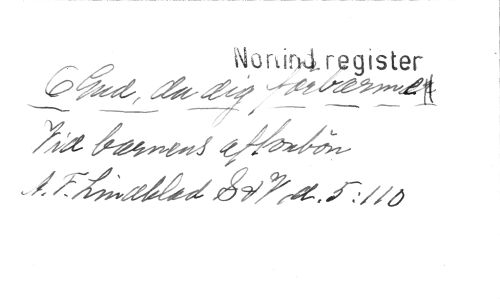 Nonind register
O Gud, du dig förbarmer
Vid barnens aftonbön
A. F. Lindblad S & V d. 5:110